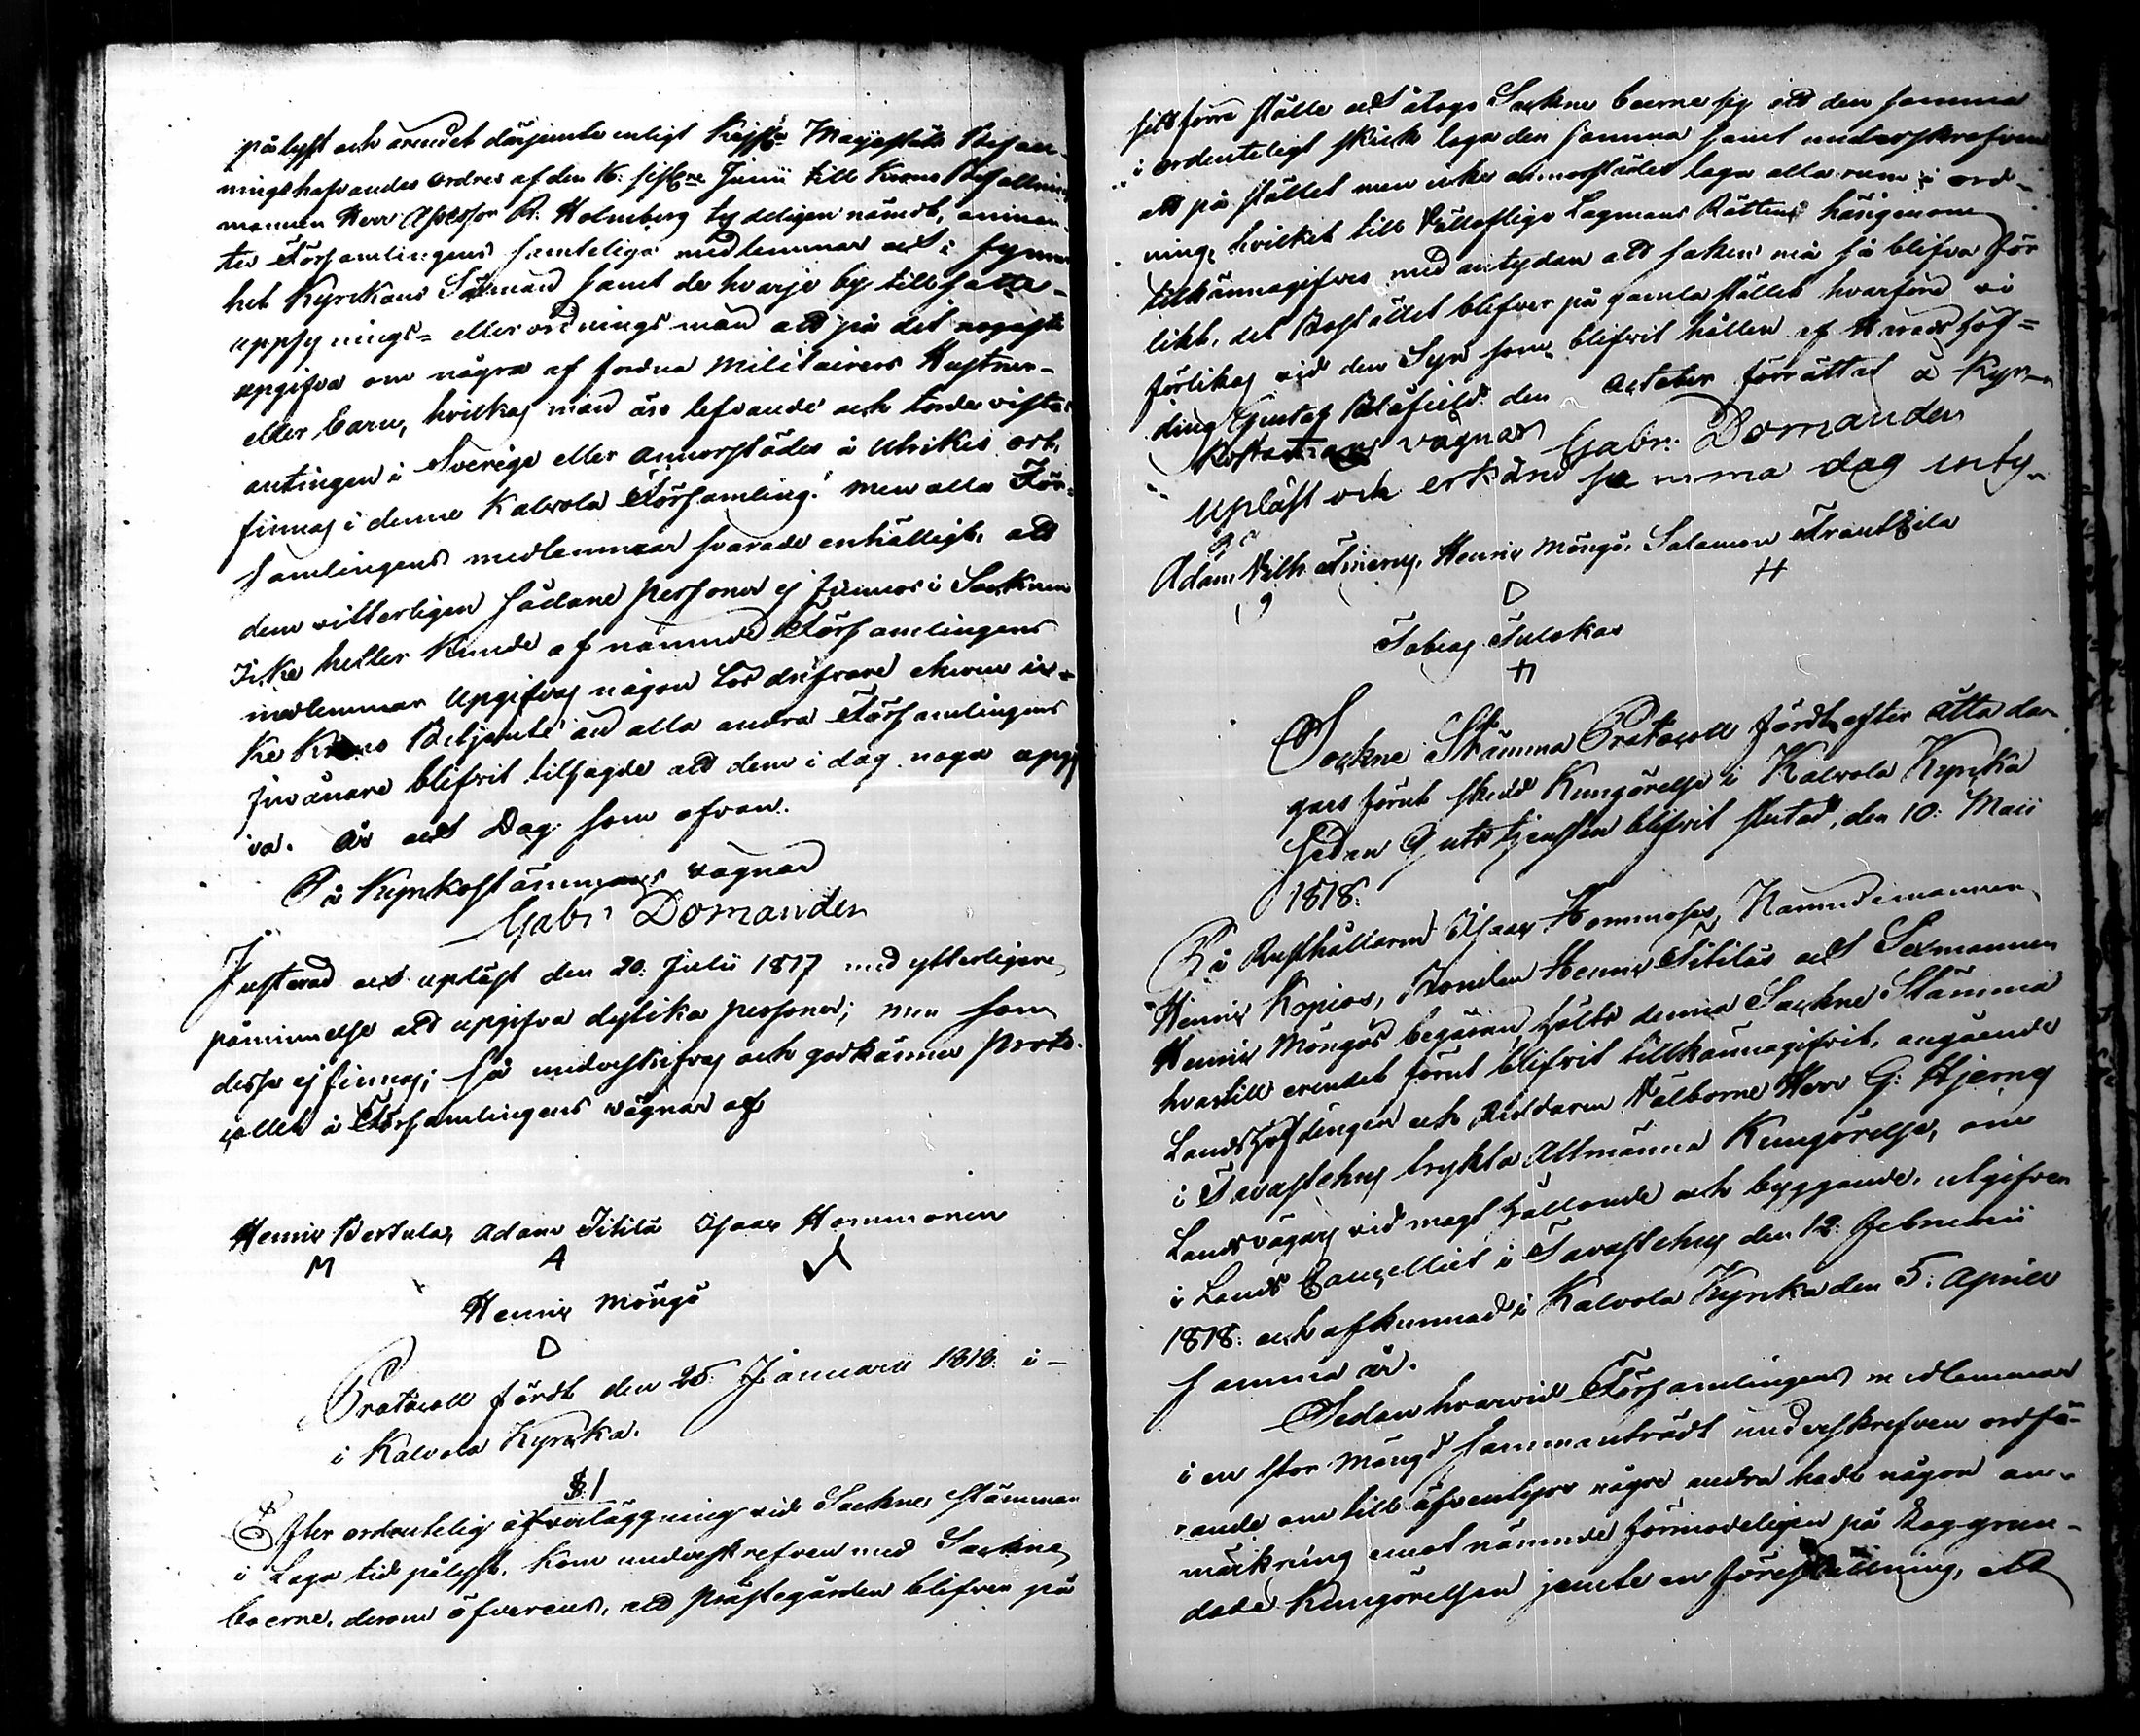 pålyst och ärendet därjemte enligt Kejsr. Majestäts Befall-
ningshafvandes ordres af den 16. sistl.ne Junii till Krono Befallnings
mannen Herr Assessor R. Holmberg tydeligen nämdt,
tes Församlingens samtelige medlemmar och i synner
het Kyrckans Säxmän samt de hvarje by tillsatte
uppsynings= eller ordningsmän att på det nogaste
upgifva om några af fordna Militairers Hustrur
eller barn, hvilkas män äro lefvande och torde vistas
antingen i Sverige eller annorstädes å Utrikes ort,
finnas i denne Kalvola Församling! Men alla För=
samlingens medlemmar svarade enhälligt, att
dem vitterligen sådane personer ej funnos i Socknen
Icke heller kunde af nämnde Församlingens
medlemmar upgifvas någon
ke Krono Betjente än alla andra Församlingens
Invånare blifvit tilsagde att dem i dag noga upgif
va. År och Dag som ofvan.
På Kyrkostämmans vägnar
Gabr. Domander
Justerad och upläst den 20. Julii 1817 med ytterligare
påminnelse att upgifva dylika personer; men som
desse ej finnas; så underskrifves och godkännes Proto-
collet å Församlingens vägnar af
Henric Bertula, Adam Jitilä Isaac Hommonen
M A
Henric Möngö
D
Protocoll fördt den 25. Januarii 1818 i
i Kalvola Kyrcka.
§ 1
Efter ordentelig öfverläggning vid Sockne stämman
i Laga tid pålyst, kom underskrefven med Sockne
boerne, derom öfverens, att Prästegården blifver på
sitt förra ställe och åtogo Sockne boerne sig att den samma
i ordenteligt skick laga den samma samt underskrefven
att på stället men icke annorstädes laga alla rum i ord-
ning, hvilket till Vällofliga Lagmans Rätten härigenom
tillkännagifves med antydan att saken må så blifva för
likt, det Bostället blifver på gamla stället hvarföre vi
förlikas vid den Syn som blifvit hållen af Häradshöf=
ding Gustaf Blåfield den October förrättad å Kyr-
kostämmans vägnar Gabr. Domander
Upläst och erkänd samma dag inty-
ga
Adam Vilh. Henric Möngö, Salomon Frantzila
D H
Tobias Tulokas
H
Sockne Stämma Protocoll fördt efter åtta da-
gars förut skedd Kungörelse i Kalvola Kyrcka
sedan Gutstjensten blifvit slutad, den 10. Maii
1818.
På Rusthållaren Isaac Hommoses, Nämndemannen
Henric Kopios, Bonden Henric Jitiläs och Sexmannen
Henric Möngös begäran, hölts denna Sockne Stämma
hvartill erendet förut blifvit tillkännagifvit, angående
Landshöfdingen och Riddaren Välborne Herr G. Hjernes
i Tavastehus tryckta Allmänna Kungörelse, om
Landsvägars vid magt hållande och byggande, utgifven
i Lands Cancelliet i Tavastehus den 12. Februarii
1818. och afkunnad i Kalvola Kyrcka den 5. Aprill
samma år.
Sedan hvarvid Församlingens medlemmar
i en stor mängd sammanträdt underskrefven ordfö-
rande om till äfventyrs någre andra hade någon an-
märkning emot nämnde förmodeligen på Lag grun-
dade Kungörelsen jemte en föreställning, att